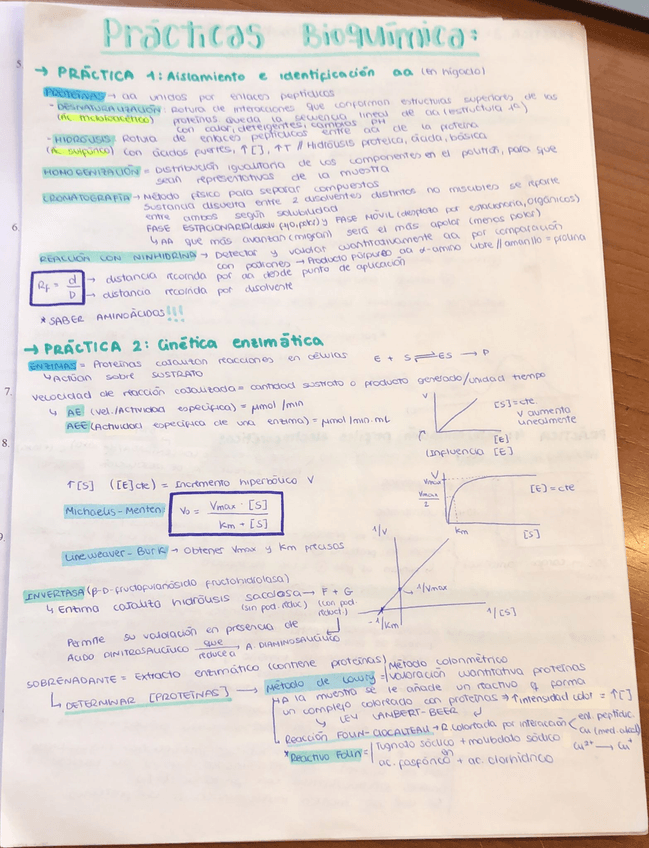 Prácticas Bioquímica:
→ PRÁCTICA 1: Aislamiento e identificación aa (en hígado)
PROTEÍNAS → aa unidos por enlaces peptídicos
- DESNATURALIZACIÓN: Rotura de interacciones que conforman estructuras superiores de las
(Ác. tricloroacético) proteínas, queda la secuencia lineal de aa (estructura 1ª)
con calor, detergentes, cambios pH
- HIDRÓLISIS: Rotura de enlaces peptídicos entre aa de la proteína
(Ác. sulfúrico) con ácidos fuertes, ↑[ ], ↑T // Hidrólisis proteica, ácida, básica
HOMOGENIZACIÓN = Distribución igualitaria de los componentes en el politrón, para que
sean representativos de la muestra
CROMATOGRAFÍA → Método físico para separar compuestos
Sustancia disuelta entre 2 disolventes distintos no miscibles se reparte
entre ambos según solubilidad
FASE ESTACIONARIA y FASE MÓVIL
↳ AA que más avanzan (migran) será el más apolar (menos polar)
REACCIÓN CON NINHIDRINA → Detectar y valorar cuantitativamente aa por comparación
con patrones → Producto púrpura aa α-amino libre // amarillo = prolina
Rf = d/D → distancia recorrida por aa desde punto de aplicación
→ distancia recorrida por disolvente
* SABER AMINOÁCIDOS!!!
→ PRÁCTICA 2: Cinética enzimática
ENZIMAS = Proteínas catalizan reacciones en células E + S ⇌ ES → P
↳ Actúan sobre SUSTRATO
Velocidad de reacción catalizada = cantidad sustrato o producto generado/unidad tiempo
↳ AE (Vel./Actividad específica) = μmol/min
AEE (Actividad específica de una enzima) = μmol/min.mL
V
[S]=cte.
V aumenta linealmente
[E]
(Influencia [E]
↑[S] ([E]cte) = Incremento hiperbólico V
Michaelis-Menten: V₀ = Vmax · [S] / Km + [S]
V
Vmax
Vmax/2
[E]=cte
Km
[S]
Lineweaver-Burk → Obtener Vmax y Km precisas
1/V
1/Vmax
1/[S]
-1/Km
INVERTASA (β-D-fructofuranósido fructohidrolasa)
↳ Enzima cataliza hidrólisis sacarosa → F + G
(sin pod. reduc.) (con pod. reduct.)
Permite su valoración en presencia de
ÁCIDO DINITROSALICÍLICO que reduce a → A. DIAMINOSALICÍLICO
SOBRENADANTE = Extracto enzimático (contiene proteínas)
↳ DETERMINAR [PROTEÍNAS] → Método de Lowry = Método colorimétrico
Valoración cuantitativa proteínas
A la muestra se le añade un reactivo q forma
un complejo coloreado con proteínas → ↑ intensidad color = ↑[ ]
↳ LEY LAMBERT-BEER
Reacción FOLIN-CIOCALTEAU → R. coloreada por interacción enl. peptídic.
Cu (med. alcal)
Cu²⁺ → Cu⁺
* Reactivo Folin = Tugnato sódico + molibdato sódico
ác. fosfórico + ac. clorhídrico
5.
6.
7.
8.